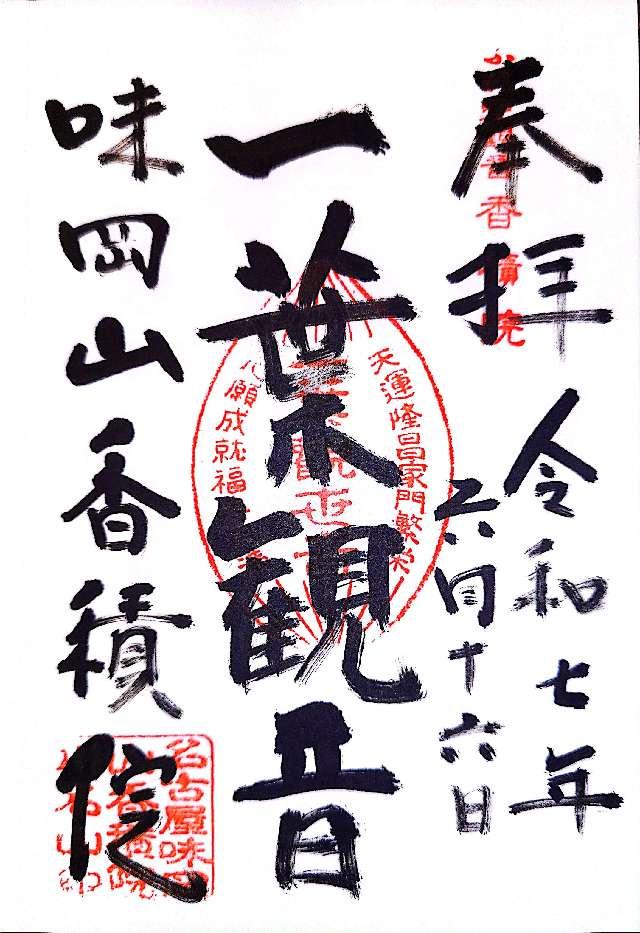 奉拝
令和七年
六月十六日
一葉観音
天運隆昌家門繁
願成就福
味岡山香積院
名古屋味岡
山香積院